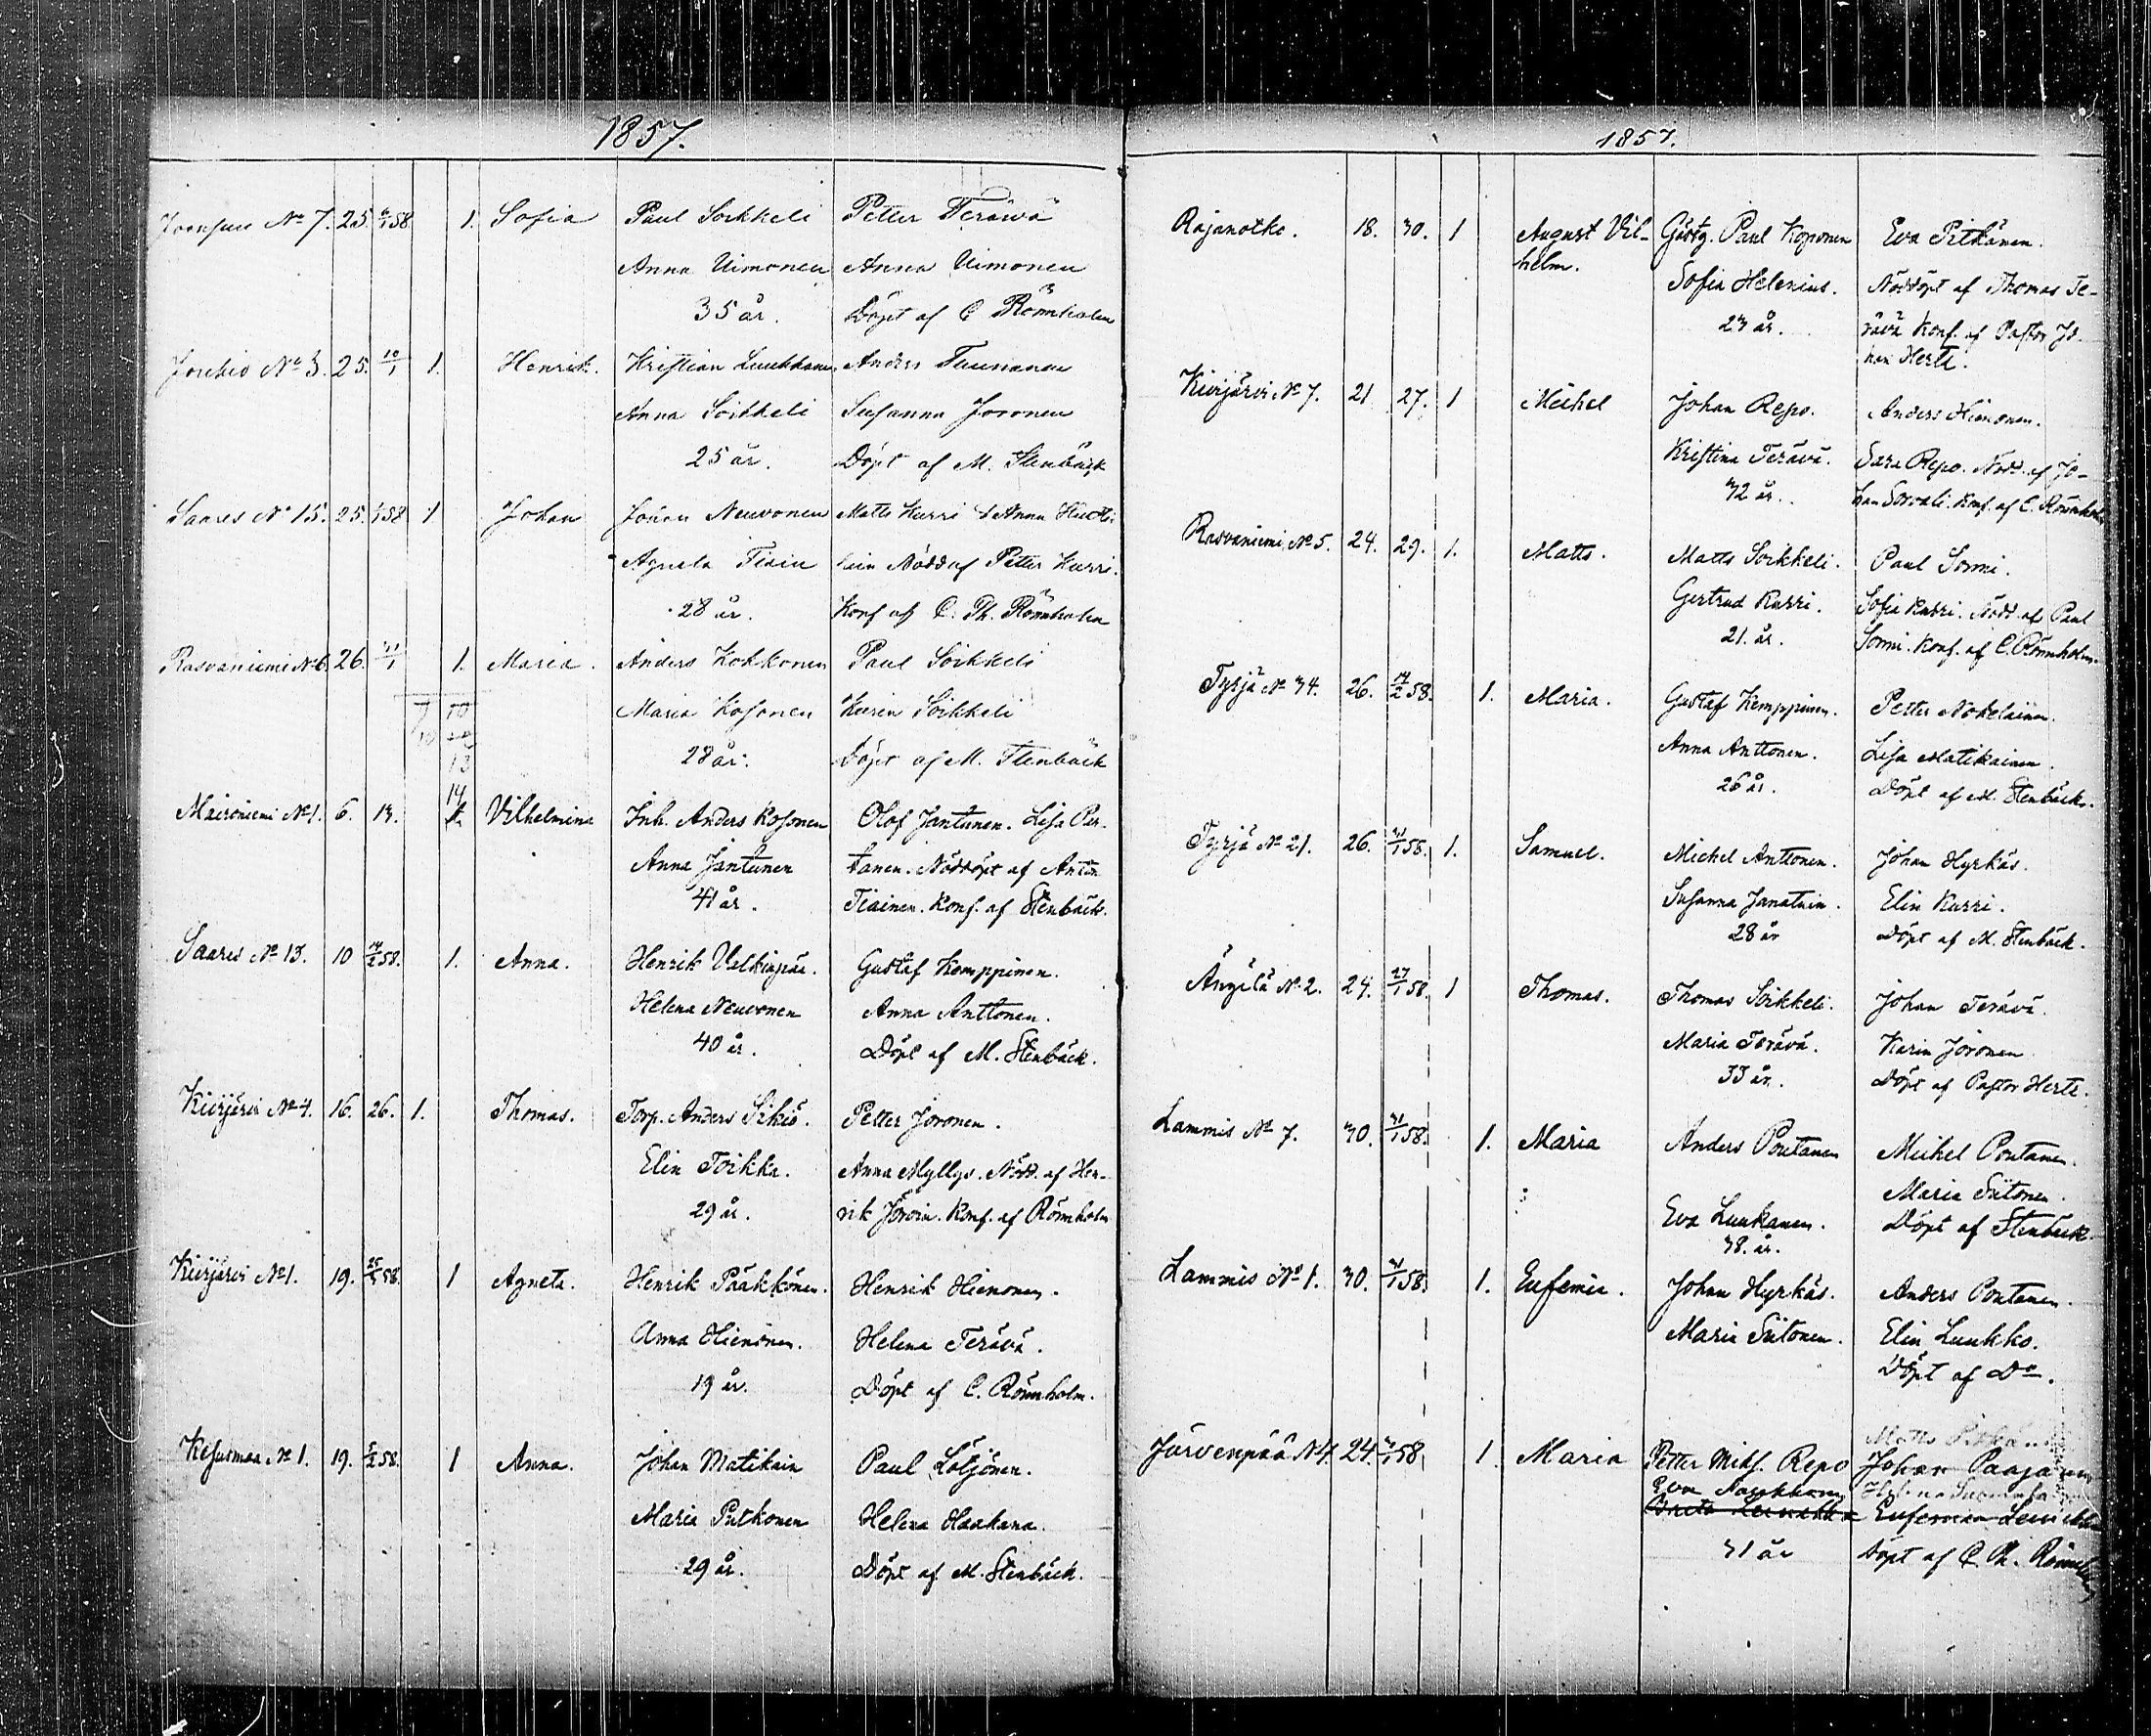 1857.
Joensuu No 7. 25. 6/1 58 1. Sofia Paul Soikkeli Petter Teräwä
Anna Uimonen Anna Uimonen
35 år. Döpt af C Rönnholm
No 3. 25. 10/1 1. Henrik. Kristian Luukkanen Anders Tuunanen
Anna Soikkeli Susanna Joronen
25 år. Döpt af M. Stenbäck
Saares No 15. 25. 58 1 Johan Johan Neuvonen Matts Kurri & Anna Huchti-
Agneta Tiain ain Nödd af Petter Kurri.
28 år. Konf af C. Th. Rönnholm
Rasvaniemi No 6. 26. 31/1 1. Maria. Anders Kokkonen Paul Soikkeli
Maria Kosonen Karin Soikkeli
28 år. Döpt af M. Stenbäck
10
13
14
Mieroniemi No 1. 6. 13. Vilhelmina Inh. Anders Kosonen Olof Jantunen. Lisa Par-
Anna Jantunen tanen. Nöddöpt af Anton
41 år. Tiainen. Konf. af Stenbäck.
Saares No 13. 10 14/2 58. 1. Anna. Henrik Valkiapää. Gustaf Kemppinen.
Helena Neuvonen Anna Anttonen.
40 år. Döpt af M. Stenbäck.
Kiurjärvi No 4. 16. 26. 1. Thomas. Torp. Anders Sikiö. Petter Joronen.
Elin Toikka. Anna Myllys. Nödd. af Hen-
29 år. rik Joroin. Konf. af Rönnholm
Kiurjärvi No 1. 19. 58. 1 Agneta. Henrik Pääkkönen. Henrik Hienonen.
Anna Hienonen. Helena Terävä.
19 år. Döpt af C. Rönnholm.
Kesusmaa No 1. 19. 5/2 58. 1 Anna. Johan Matikain Paul Lötjönen.
Maria Putkonen Helena Haakana.
29 år. Döpt af M. Stenbäck.
1857.
Rajanotko. 18. 30. 1 August Vil- Gästg. Paul Koponen Eva Pitkänen.
helm. Sofia Helenius. Nöddöpt af Thomas Te-
23 år. rävä Konf. af Pastor Jo-
han Hertz.
Kiurjärvi No 7. 21 27. 1 Michel Johan Repo. Anders Hienonen.
Kristina Terävä. Sara Repo. Nödd. af Jo-
32 år. han Sorvali. Konf. af C. Rönnholm
Rasvaniemi No 5. 24. 29. 1. Matts. Matts Soikkeli. Paul Sormi.
Gertrud Kurri. Sofia Kurri. Nödd. af Paul
21. år. Sormi. Konf. af C. Rönnholm.
Tyrjä No 34. 26. 14/2 58. 1. Maria. Gustaf Kemppinen. Petter Nokelainen.
Anna Anttonen. Lisa Matikainen.
26 år. Döpt af M. Stenbäck.
Tyrjä No 21. 26. 31/1 58. 1. Samuel. Michel Anttonen. Johan Hyrkäs.
Susanna Janatuin. Elin Kurri.
28 år Döpt af M. Stenbäck.
Ängilä No 2. 24. 17/1 58. 1 Thomas. Thomas Soikkeli. Johan Terävä.
Maria Terävä. Karin Joronen
33 år. Döpt af Pastor Hertz.
Lammis No 7. 30. 31/1 58. 1. Maria Anders Poutanen Michel Poutanen.
Maria Siitonen.
Eva Luukanen. Döpt af Stenbäck.
38. år.
Lammis No 1. 30. 31/1 58. 1. Eufemia. Johan Hyrkäs. Anders Poutanen.
Maria Siitonen. Elin Luukko.
Döpt af Do.
Järvenpää No 4. 24. 58 1. Maria Petter Mikf. Repo Johan Paajanen
Eva
Eufemia
31 år Döpt af C. Th. Rönnholm